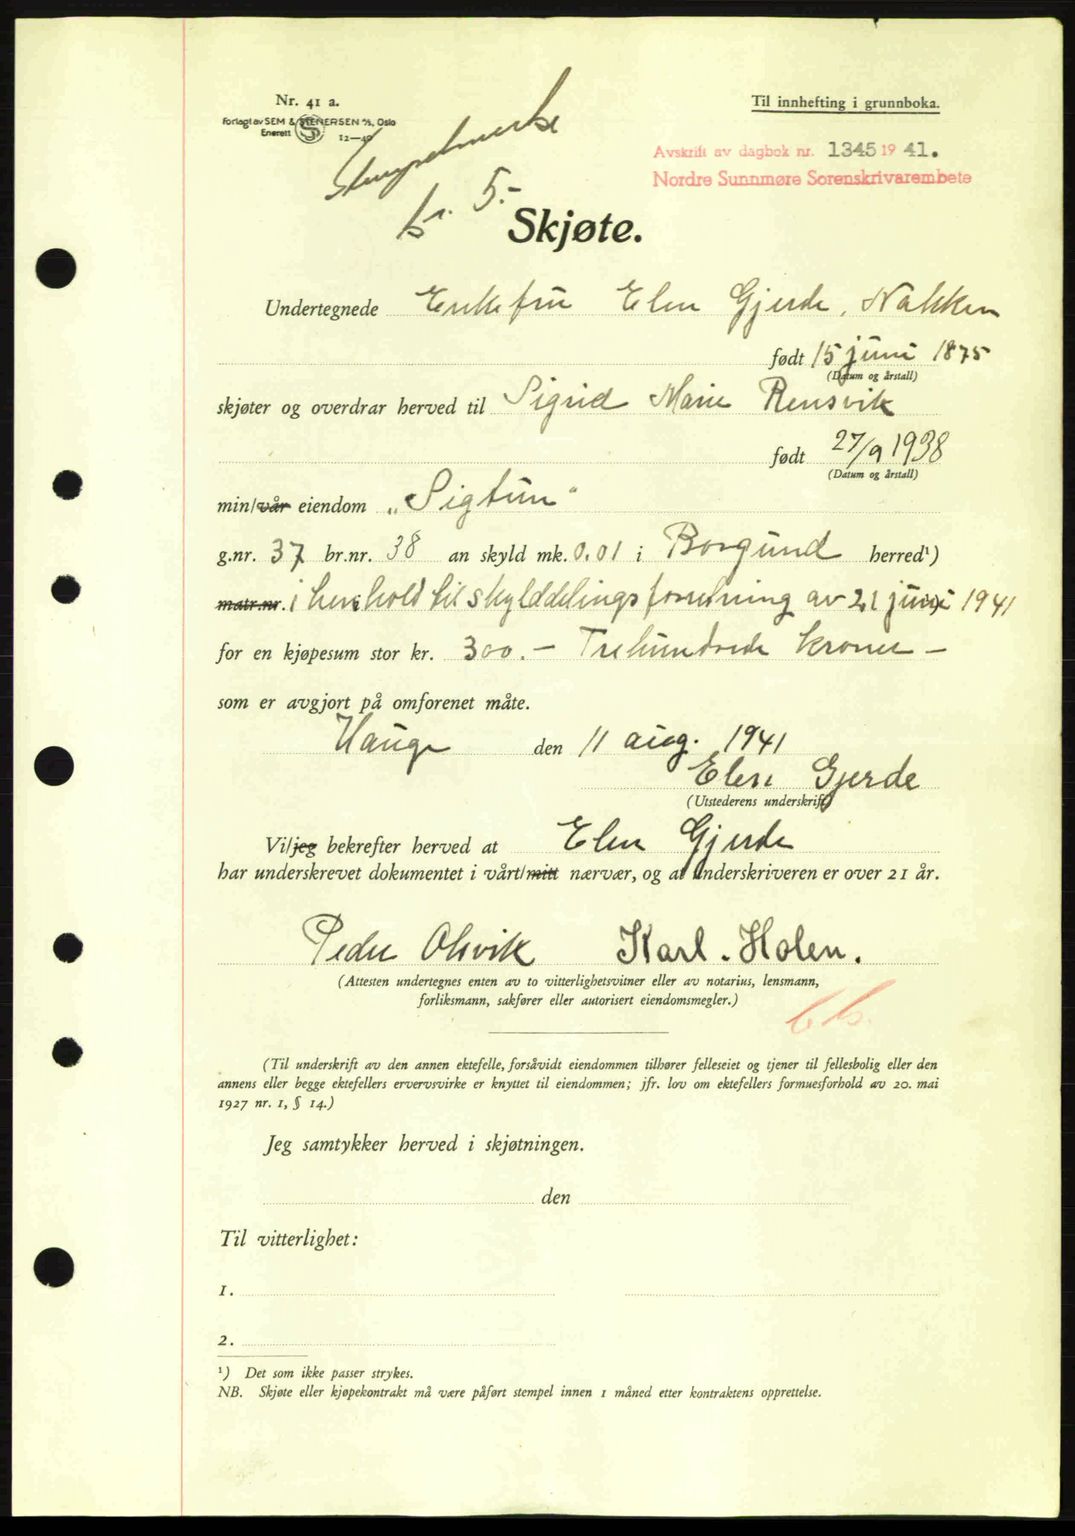 Nr. 41 a.
Forlagt av SEM & STENERSEN A/S, Oslo
Enerett S 12—40
Til innhefting i grunnboka.
Stempelmerke
kr. 5.-
Avskrift av dagbok nr. 1345 19 41.
Nordre Sunnmøre Sorenskrivarembete
Skjøte.
Undertegnede Enkefru Elen Gjerde, Nakken
født 15 juni 1875
(Datum og årstall)
skjøter og overdrar herved til Sigrid Marie Rensvik
født 27/9 1938
(Datum og årstall)
min/vår eiendom „Sigtun"
g.nr. 37 br.nr. 38 an skyld mk. 0.01 i Borgund herred¹)
matr.nr. i henhold til skylddelingsforretning av 21 juni 1941
for en kjøpesum stor kr. 300.— Trehundrede kroner —
som er avgjort på omforenet måte.
Hauge den 11 aug. 1941
Elen Gjerde
(Utstederens underskrift)
Vi/jeg bekrefter herved at Elen Gjerde
har underskrevet dokumentet i vårt/mitt nærvær, og at underskriveren er over 21 år.
Peder Olsvik Karl. Holen.
(Attesten undertegnes enten av to vitterlighetsvitner eller av notarius, lensmann,
forliksmann, sakfører eller autorisert eiendomsmegler.)
(Til underskrift av den annen ektefelle, forsåvidt eiendommen tilhører felleseiet og tjener til fellesbolig eller den
annens eller begge ektefellers ervervsvirke er knyttet til eiendommen; jfr. lov om ektefellers formuesforhold av 20. mai
1927 nr. 1, § 14.)
Jeg samtykker herved i skjøtningen.
den
Til vitterlighet:
1.
2.
¹) Det som ikke passer strykes.
NB. Skjøte eller kjøpekontrakt må være påført stempel innen 1 måned etter kontraktens opprettelse.